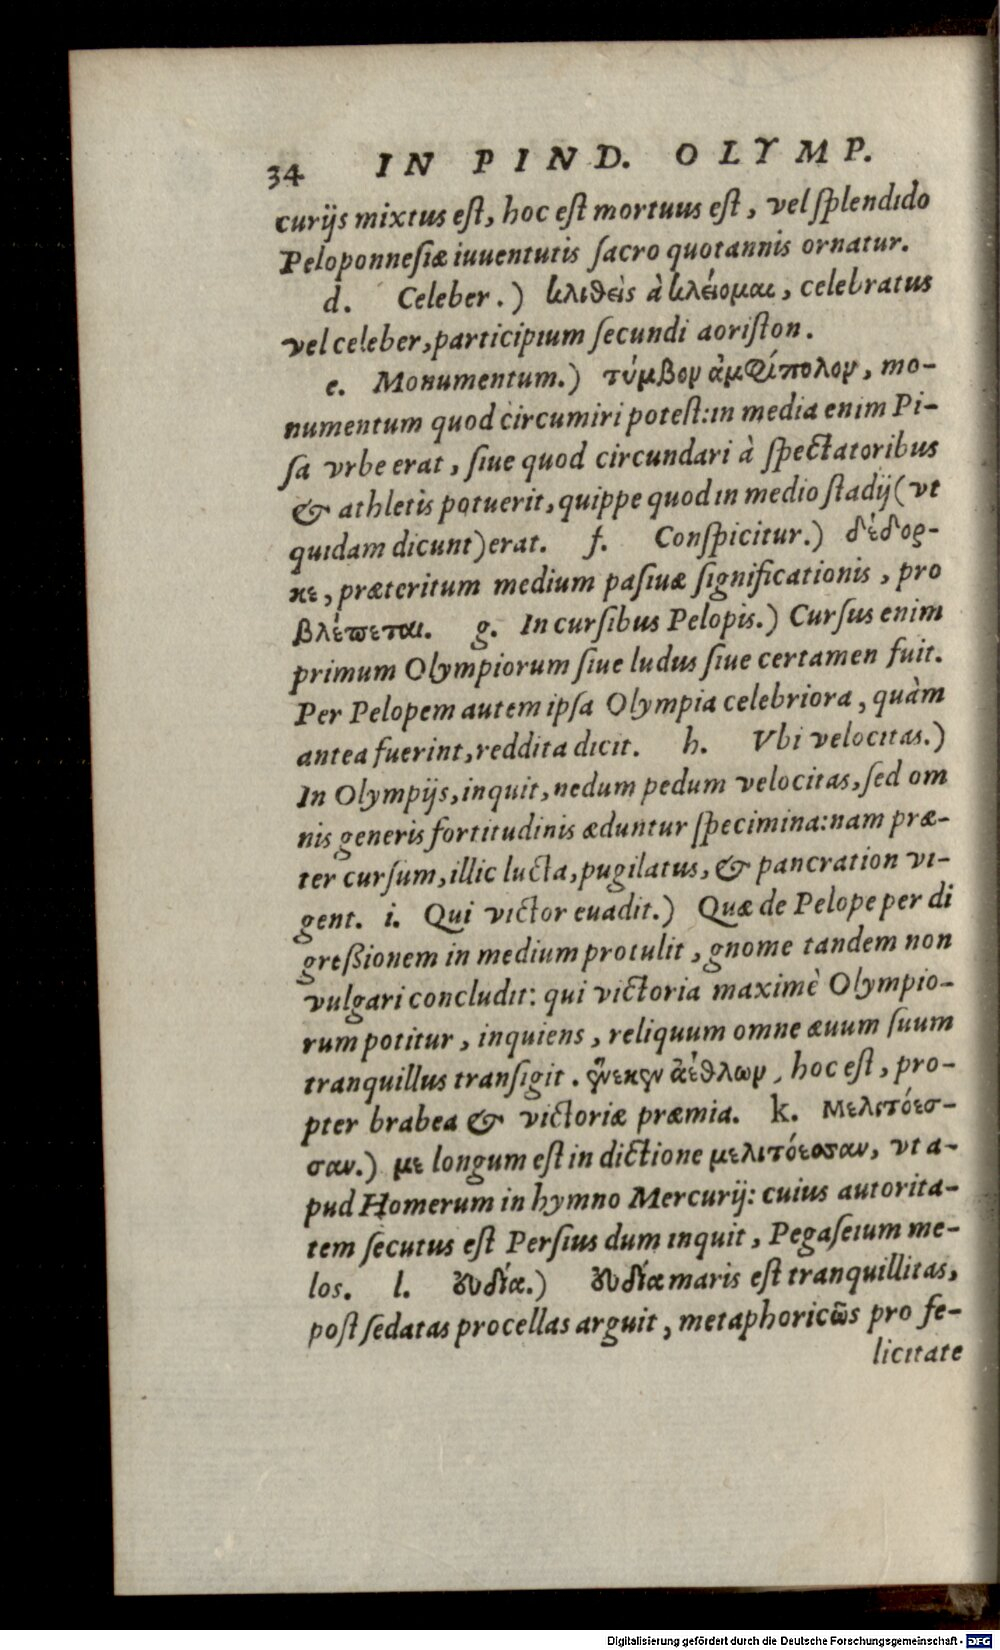 34 IN PIND. OLYMP.
curijs mixtus eſt, hoc eſt mortuus eſt, vel ſplendido
Peloponneſiæ iuuentutis ſacro quotannis ornatur.
d. Celeber.) κλιθεὶς à κλείομαι, celebratus
vel celeber, participium ſecundi aoriſton.
e. Monumentum.) τύμβον ἀμφίπολον, mo-
numentum quod circumiri poteſt: in media enim Pi-
ſa vrbe erat, ſiue quod circundari à ſpectatoribus
& athletis potuerit, quippe quod in medio ſtadij (vt
quidam dicunt) erat. f. Conſpicitur.) δέδορ-
κε, præteritum medium paſiuæ ſignificationis, pro
βλέπεται. g. In curſibus Pelopis.) Curſus enim
primum Olympiorum ſiue ludus ſiue certamen fuit.
Per Pelopem autem ipſa Olympia celebriora, quàm
antea fuerint, reddita dicit. h. Vbi velocitas.)
In Olympijs, inquit, nedum pedum velocitas, ſed om
nis generis fortitudinis æduntur ſpecimina: nam præ-
ter curſum, illic lucta, pugilatus, & pancration vi-
gent. i. Qui victor euadit.) Quæ de Pelope per di
greßionem in medium protulit, gnome tandem non
vulgari concludit: qui victoria maximè Olympio-
rum potitur, inquiens, reliquum omne æuum ſuum
tranquillus tranſigit. ἕνεκεν ἀέθλων, hoc eſt, pro-
pter brabea & victoriæ præmia. k. Μελιτόεσ-
σαν.) με longum eſt in dictione μελιτόεσσαν, vt a-
pud Homerum in hymno Mercurij: cuius autorita-
tem ſecutus eſt Perſius dum inquit, Pegaſeium me-
los. l. ευδία.) ευδία maris eſt tranquillitas,
poſt ſedatas procellas arguit, metaphoricῶs pro fe-
licitate
Digitalisierung gefördert durch die Deutsche Forschungsgemeinschaft - DFG